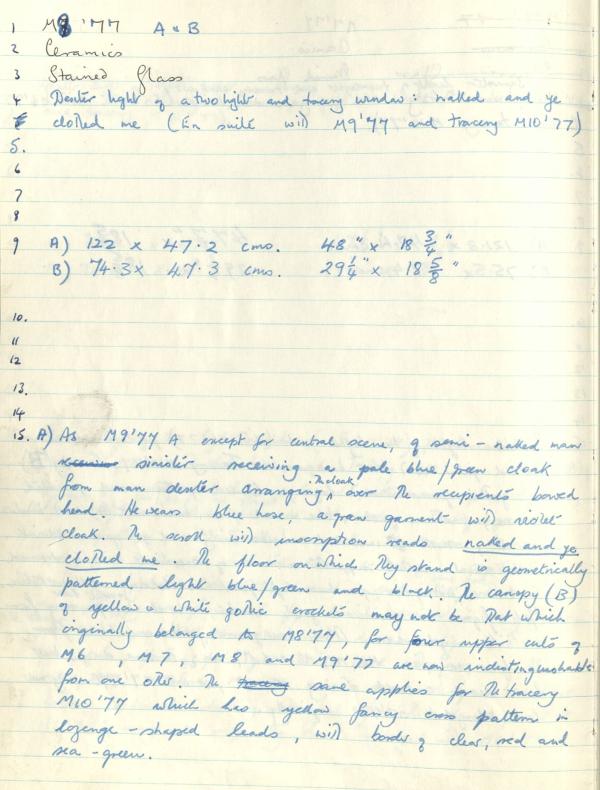 1 M8 '77 A & B
2 Ceramics
3 Stained Glass
4 Dexter light of a two light and tracery window: naked and ye
clothed me (En suite with M9'77 and tracery M10'77)
5.
6
7
8
9 A) 122 x 47.2 cms. 48" x 18 3/4"
B) 74.3 x 47.3 cms. 29 1/4" x 18 5/8"
10.
11
12
13.
14
15. A) As M9'77 A except for central scene, of semi-naked man
sinister receiving a pale blue/green cloak
from man dexter arranging the cloak over the recipients bowed
head. He wears blue hose, a green garment with violet
cloak. The scroll with inscription reads naked and ye
clothed me. The floor on which they stand is geometrically
patterned light blue/green and black. The canopy (B)
of yellow & white gothic crockets may not be that which
originally belonged to M8'77, for four upper cuts of
M6, M7, M8 and M9'77 are now indistinguishable
from one other. The tracery same applies for the tracery
M10'77 which has yellow fancy cross pattern in
lozenge-shaped leads, with border of clear, red and
sea-green.